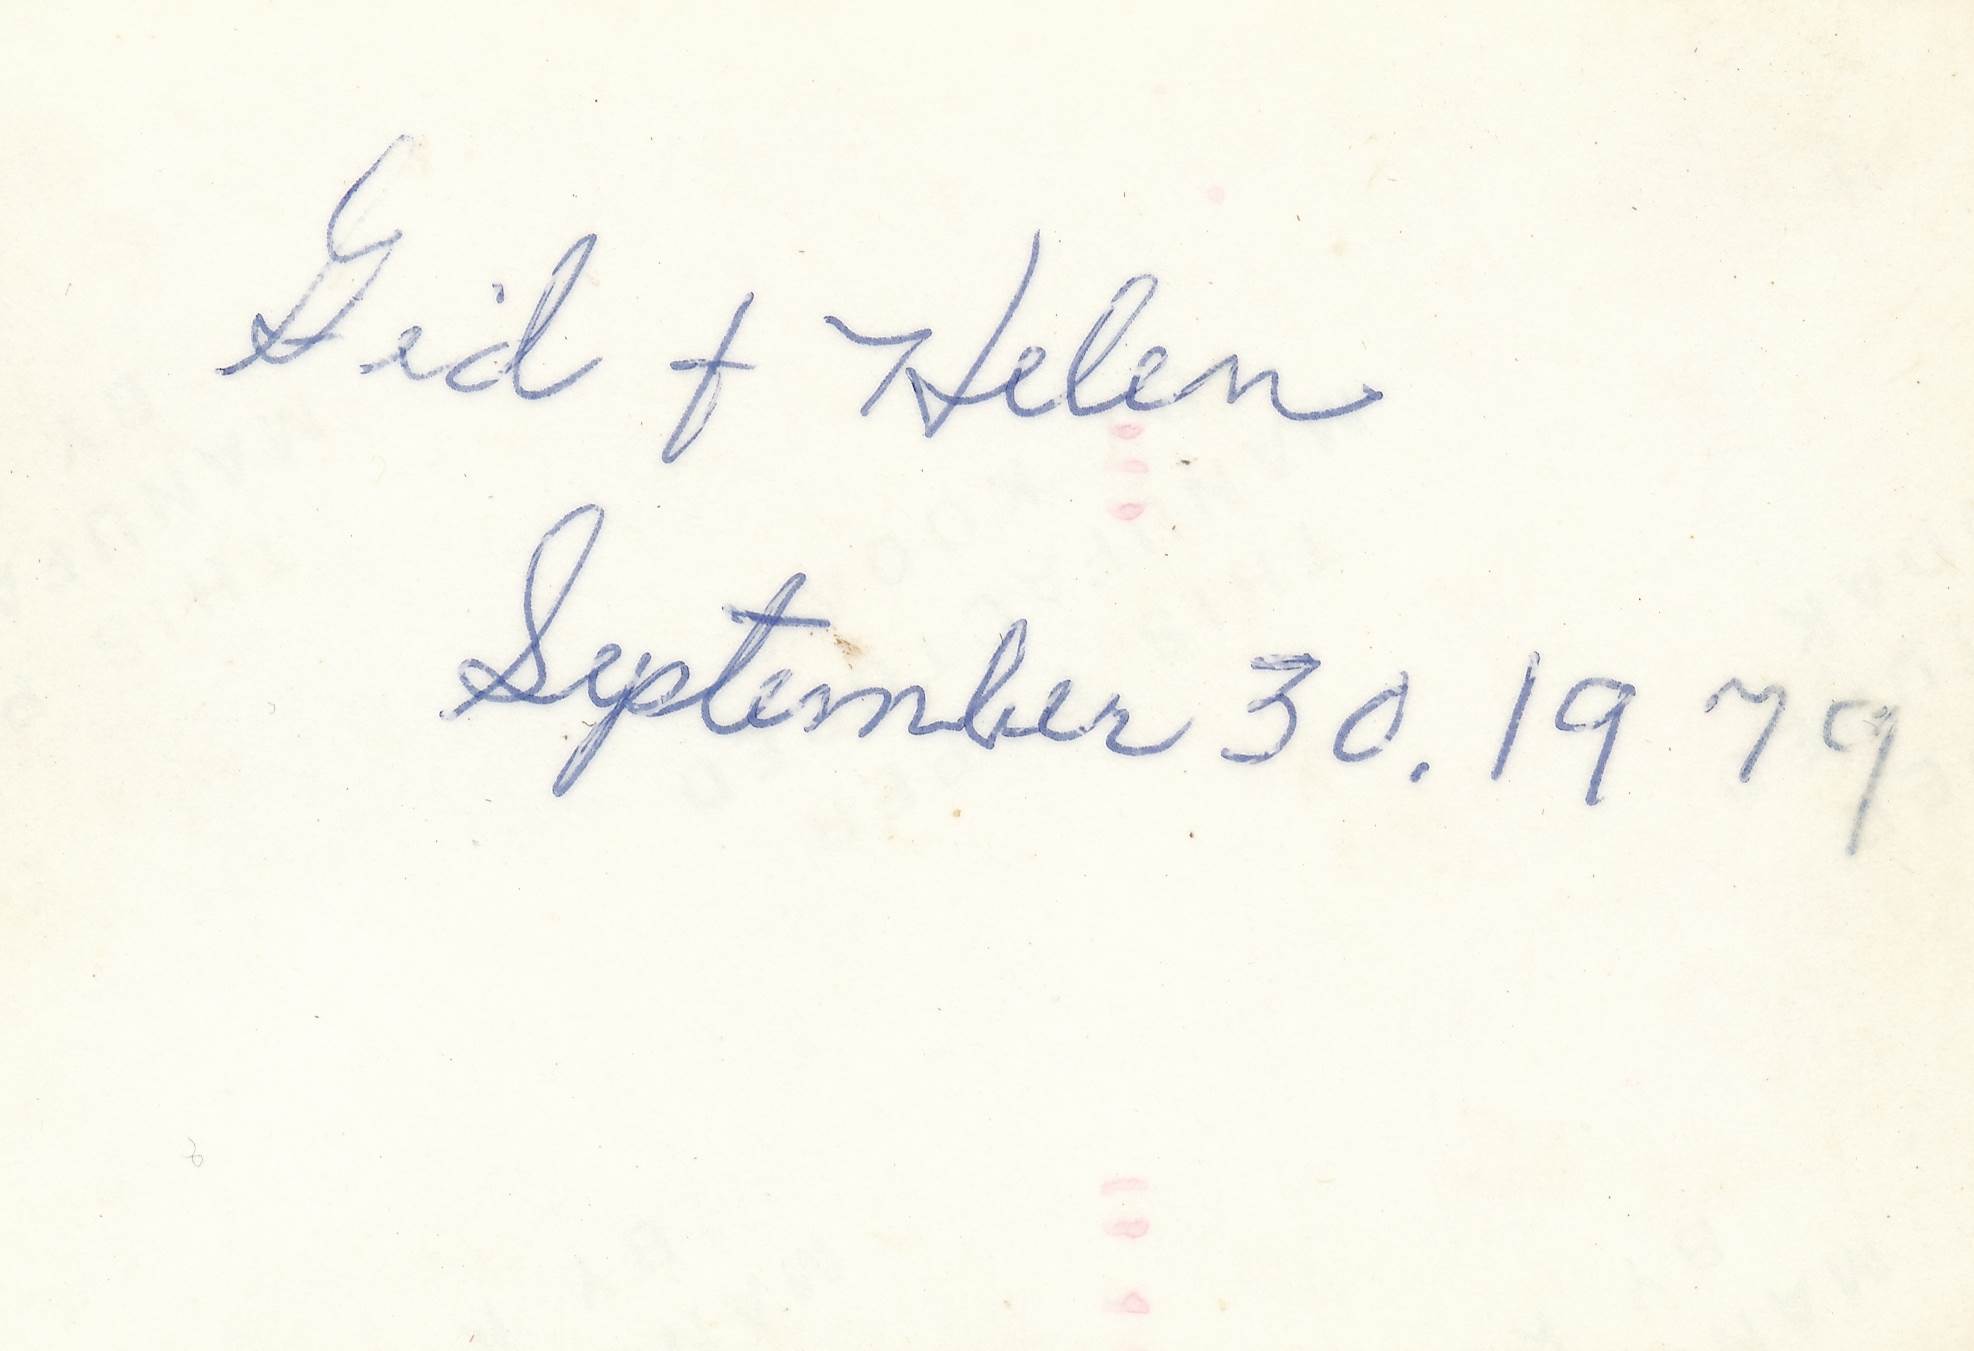 Gid + Helen
September 30. 1979